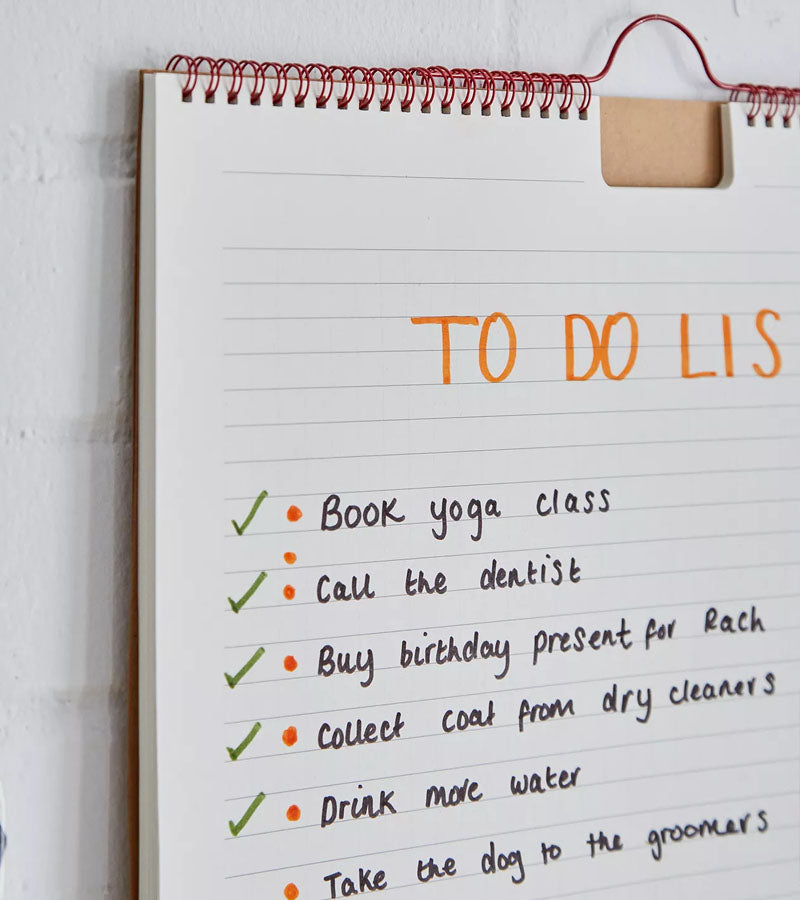 TO DO LIS
✓ • Book yoga class
✓ • Call the dentist
✓ • Buy birthday present for Rach
✓ • Collect coat from dry cleaners
✓ • Drink more water
• Take the dog to the groomers